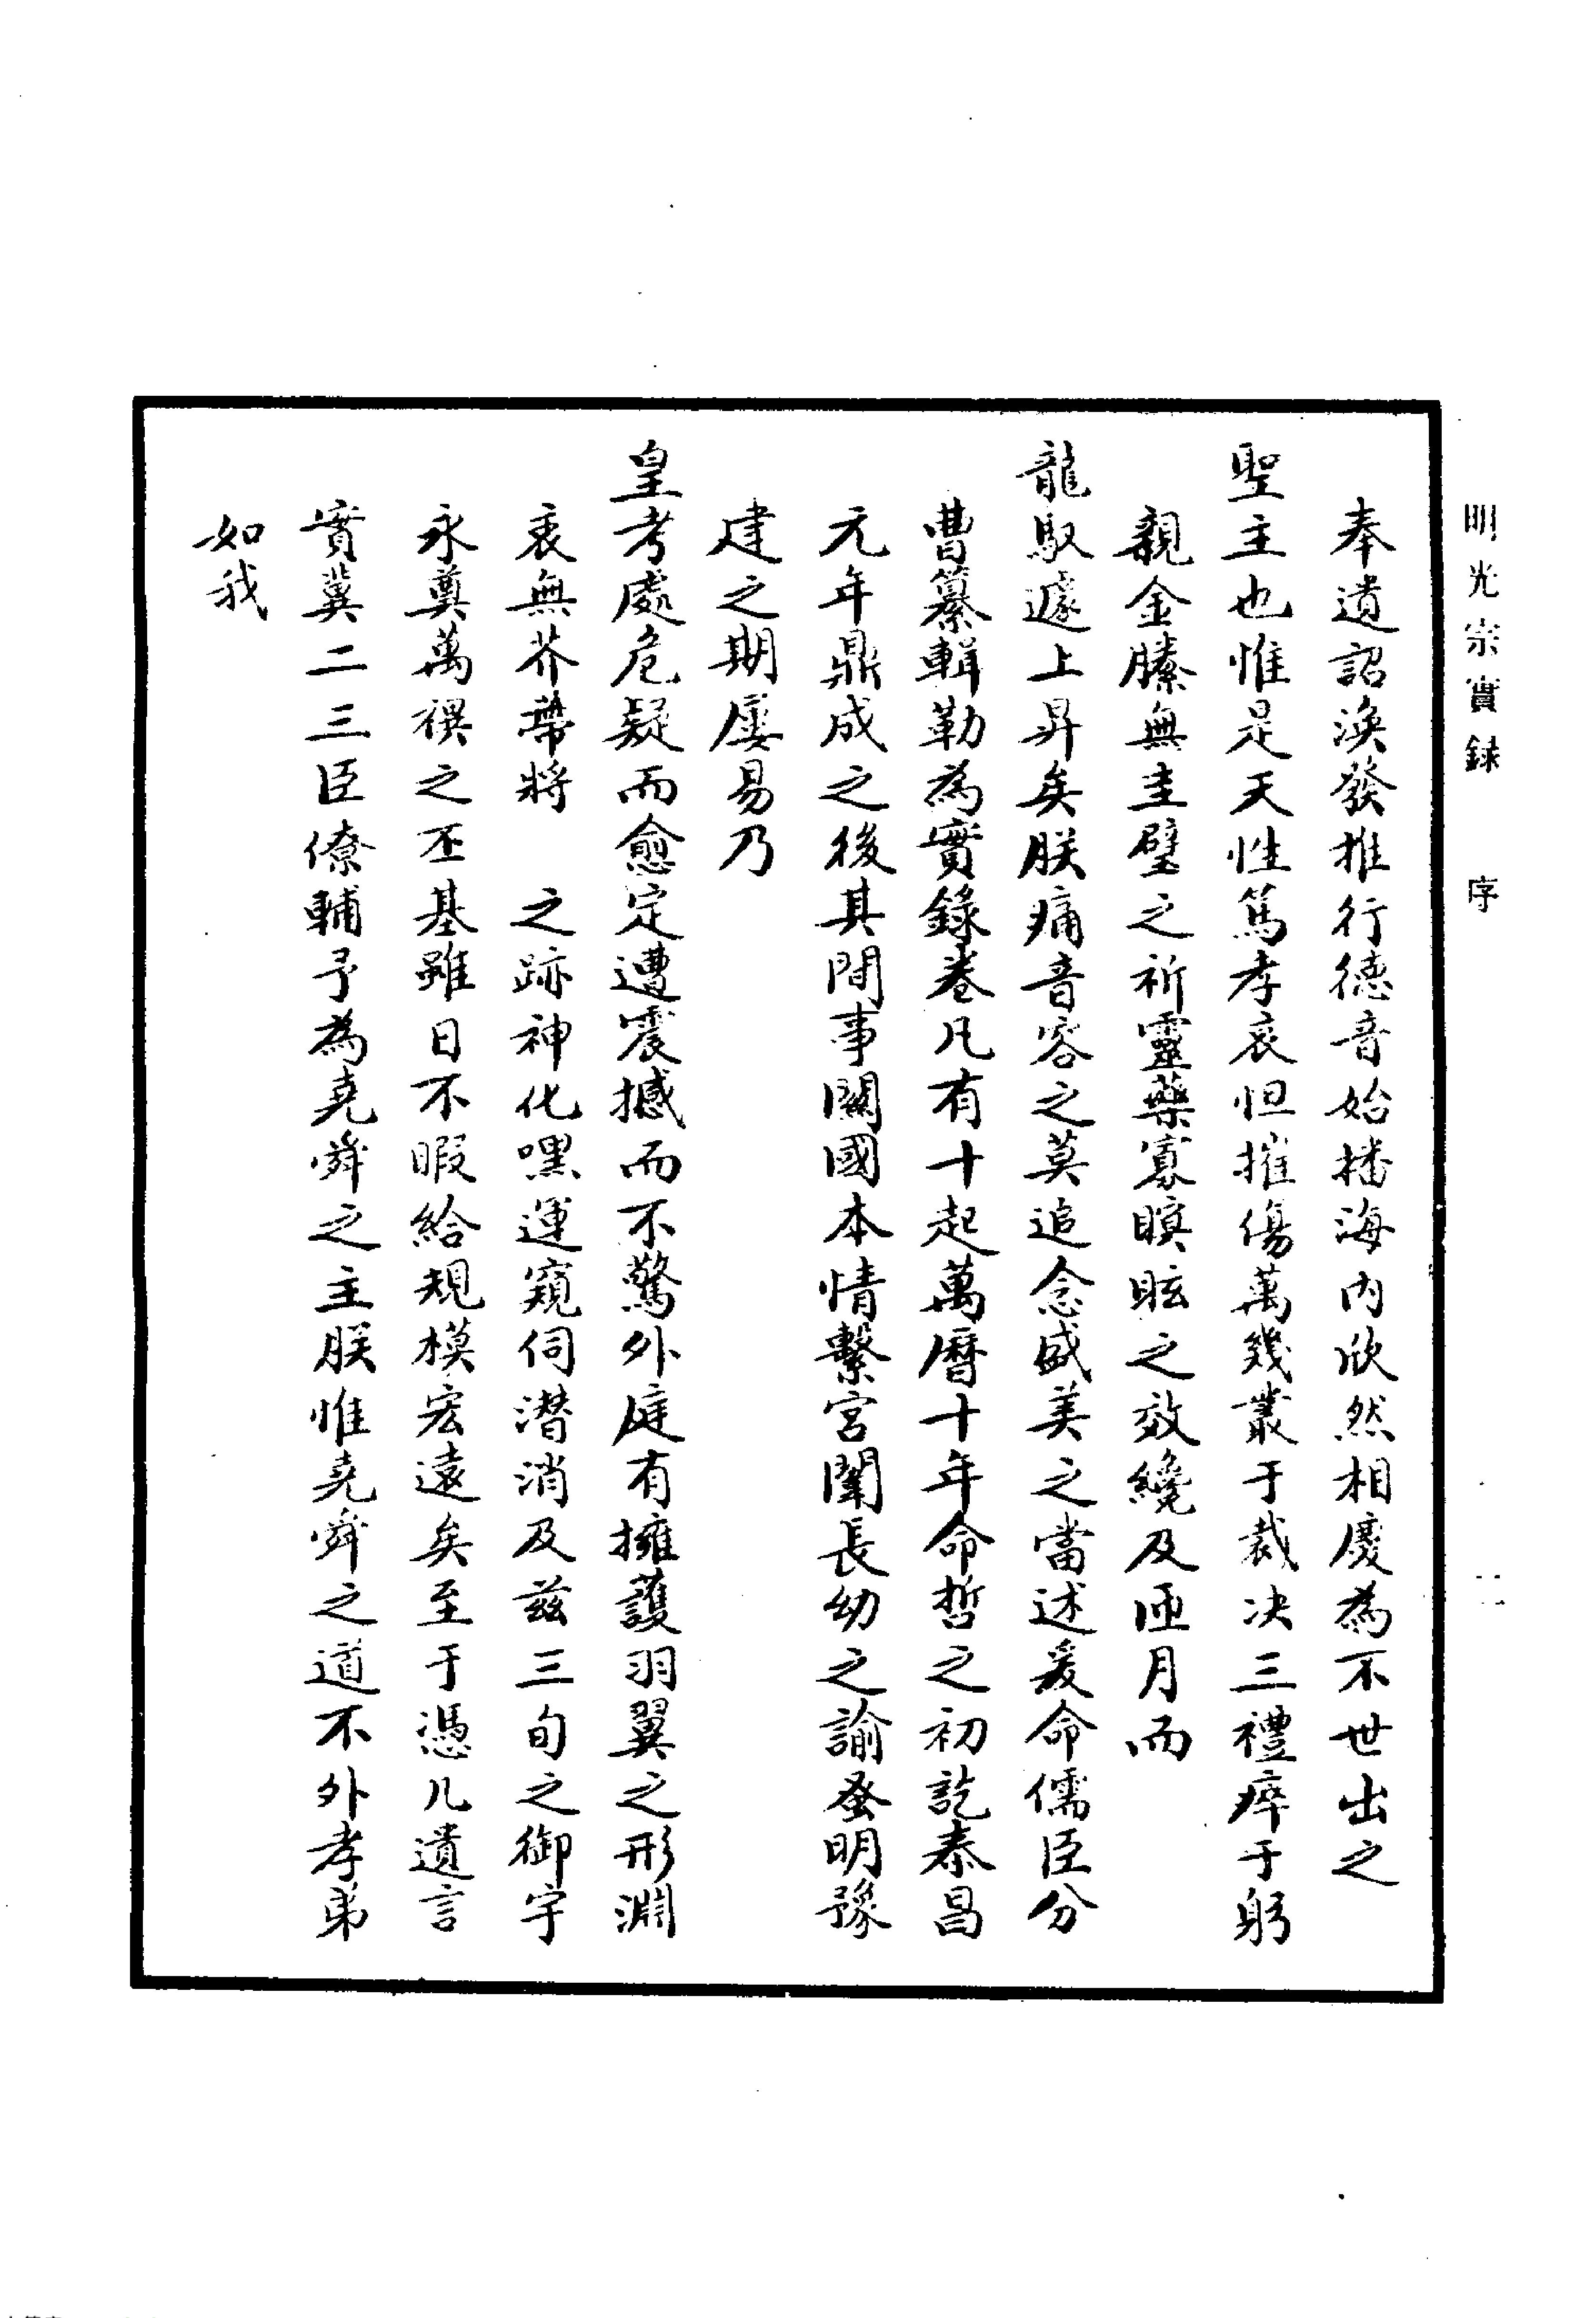 明光宗實録　序　二
奉遺詔渙發推行德音始播海內欣然相慶為不世出之
聖主也惟是天性篤孝哀怛摧傷萬幾叢于裁決三禮瘁于躬
親金縢無圭璧之祈靈藥寡瞑眩之效纔及匝月而
龍馭遽上昇矣朕痛音容之莫追念盛美之當述爰命儒臣分
曹纂輯勒為實錄卷凡有十起萬曆十年命哲之初訖泰昌
元年鼎成之後其間事關國本情繫宮闈長幼之諭蚤明豫
建之期屢易乃
皇考處危疑而愈定遭震撼而不驚外庭有擁護羽翼之形淵
衷無芥蔕將　之跡神化嘿運窺伺潛消及茲三旬之御宇
永奠萬禩之丕基雖日不暇給規模宏遠矣至于憑几遺言
實冀二三臣僚輔予為堯舜之主朕惟堯舜之道不外孝弟
如我